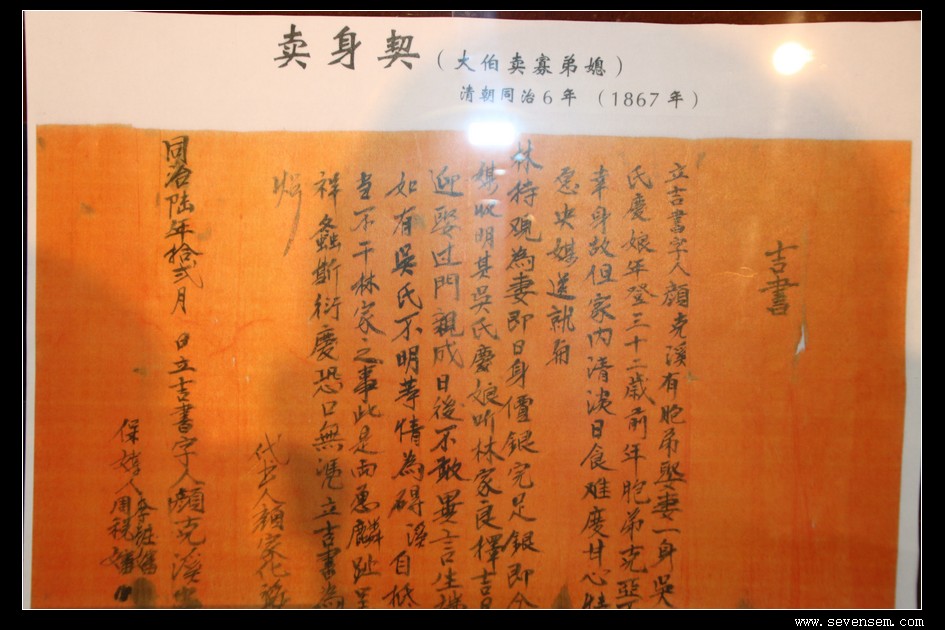 卖身契（大伯卖寡弟媳）
清朝同治6年（1867年）
吉書
立吉書字人顔克溪有胞弟娶妻一身吳
氏慶娘年登三十二歲前年胞弟克
幸身故但家内清淡日食难度甘心情
愿央媒送就與
林待觀為妻即日身價銀完足銀即仝
媒收明其吳氏慶娘听林家良擇吉日
迎娶过門親成日後不敢異言生端
如有吳氏不明等情為碍溪自抵
当不干林家之事此是両愿麟趾呈
祥螽斯衍慶恐口無憑立吉書為
炤
代書人顔家
同治陸年拾弍月 日立吉書字人顔克溪
保媒人
www.sevensem.com